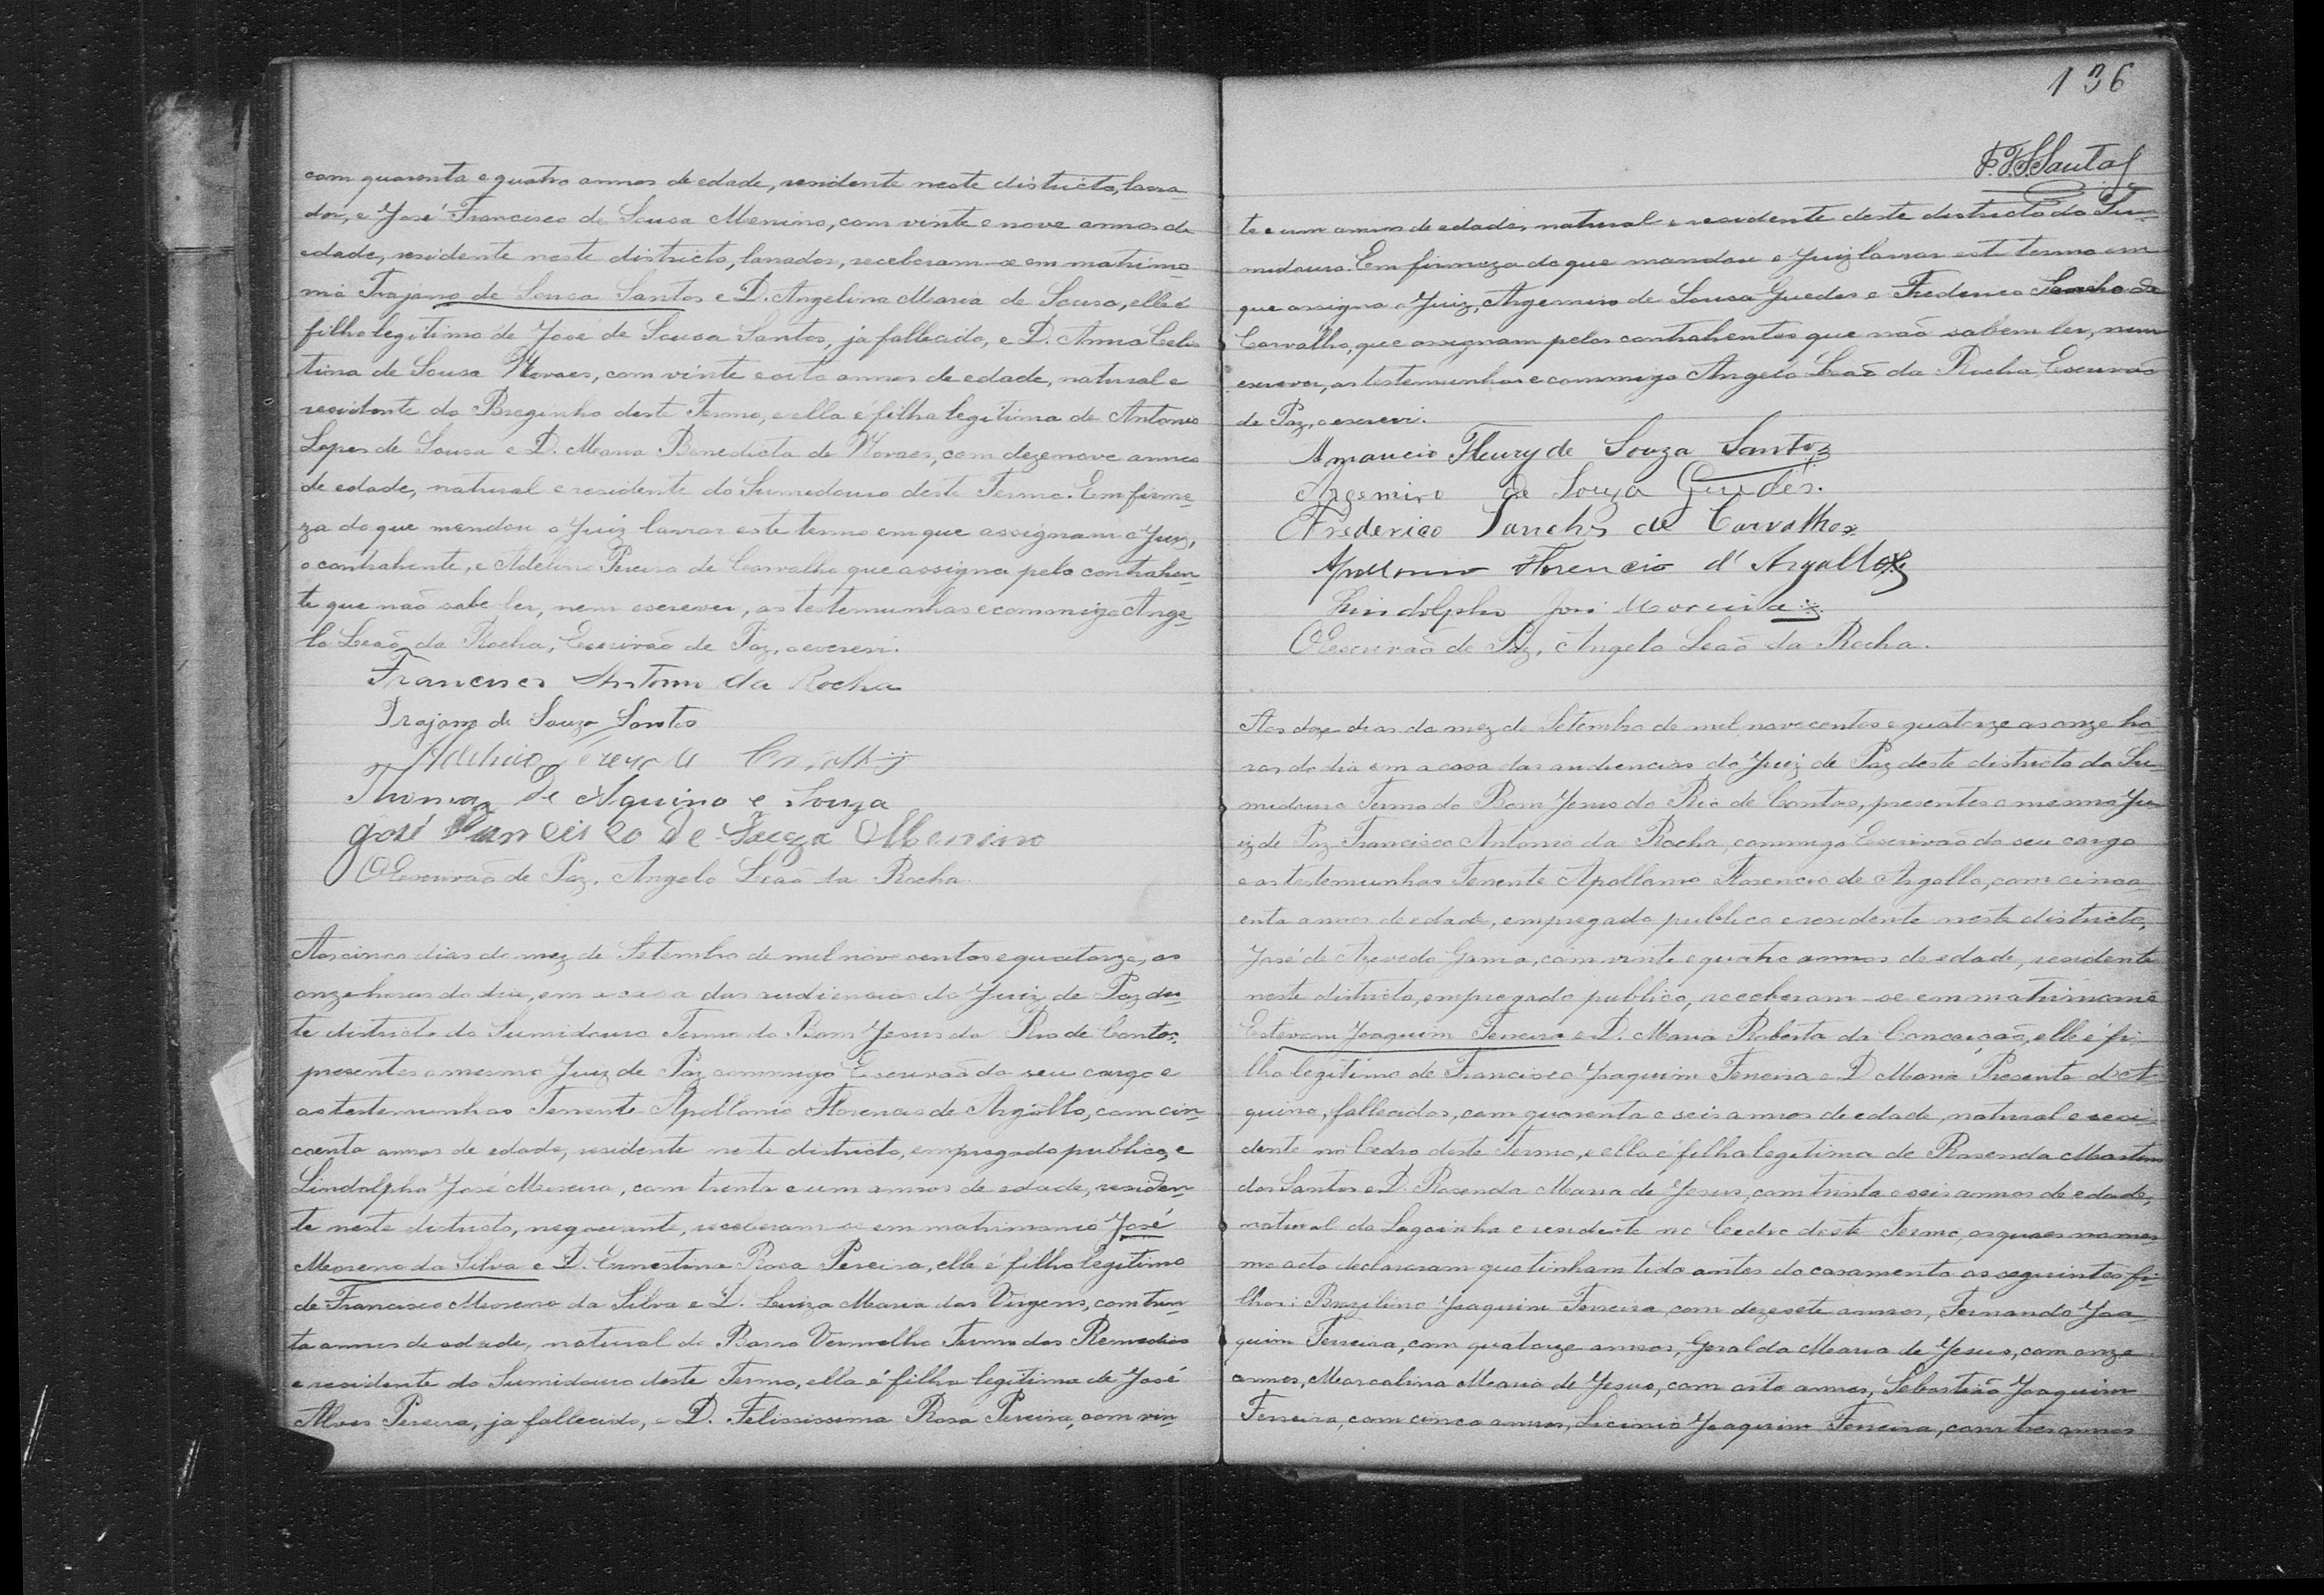 com quarenta e quatro annos de edade, residente neste districto, lavra-
dor, e José Francisco de Sousa Menino, com vinte e nove annos de
edade, residente neste districto, lavrador, receberam-se em matrimo-
nio Trajano de Sousa Santos e D. Angelina Maria de Sousa, elle é
filho legitimo de José de Sousa Santos, já fallecido, e D. Anna Celes
tina de Sousa Moraes, com vinte e oito annos de edade, natural e
residente do Breginho deste Termo, e ella é filha legitima de Antonio
Lopes de Sousa e D. Maria Benedicta de Moraes, com dezenove annos
de edade, natural e residente do Sumidouro deste Termo. Em firme-
za do que mandou o Juiz lavrar este termo em que assignam o Juiz,
o contrahente, e Adelino Pereira de Carvalho que assigna pela contrahen-
te que não sabe ler, nem escrever, as testemunhas e commigo Ange-
lo Leão da Rocha, Escrivão de Paz, o escrevi.
Francisco Antonio da Rocha
Trajano de Souza Santos
Adelino Pereira de Carvalho
Thomaz de Aquino e Souza
José Francisco de Souza Menino
O Escrivão de Paz, Angelo Leão da Rocha
Aos cinco dias do mez de Setembro de mil nove centos e quatorze, as
onze horas do dia, em a casa das audiencias do Juiz de Paz des-
te districto do Sumidouro Termo do Bom Jesus do Rio de Contas,
presentes o mesmo Juiz de Paz commigo Escrivão do seu cargo e
as testemunhas Tenente Apollonio Florencio de Argollo, com cin-
coenta annos de edade, residente neste districto, empregado publico, e
Lindolpho José Moreira, com trinta e um annos de edade, residen-
te neste districto, negociante, receberam-se em matrimonio José
Moreno da Silva e D. Ernestina Rosa Pereira, elle é filho legitimo
de Francisco Moreno da Silva e D. Luiza Maria das Virgens, com trin
ta annos de edade, natural do Barro Vermelho Termo dos Remedios
e residente do Sumidouro deste Termo, ella é filha legitima de José
Alves Pereira, já fallecido, e D. Felisissima Rosa Pereira, com vin
136
te e um annos de edade, natural e residente deste districto do Su-
midouro. Em firmeza do que mandou o Juiz lavrar este termo em
que assigna o Juiz, Argemiro de Sousa Guedes e Frederico Sanches de
Carvalho, que assignam pelos contrahentes que não sabem ler, nem
escrever, as testemunhas e commigo Angelo Leão da Rocha, Escrivão
de Paz, o escrevi.
Amancio Fleury de Souza Santos
Argemiro de Souza Guedes.
Frederico Sanches de Carvalho
Apollonio Florencio d'Argollo
Lindolpho José Moreira
O Escrivão de Paz, Angelo Leão da Rocha.
Aos doze dias do mez de Setembro de mil nove centos e quatorze as onze ho
ras do dia em a casa das audiencias do Juiz de Paz deste districto do Su-
midouro Termo do Bom Jesus do Rio de Contas, presentes o mesmo Ju-
iz de Paz Francisco Antonio da Rocha, commigo Escrivão do seu cargo
e as testemunhas Tenente Apollonio Florencio de Argollo, com cinco-
enta annos de edade, empregado publico e residente neste districto,
José de Azevedo Gama, com vinte e quatro annos de edade, residente
neste districto, empregado publico, receberam-se em matrimonio
Estevam Joaquim Ferreira e D. Maria Roberta da Conceição, elle é fi-
lho legitimo de Francisco Joaquim Ferreira e D. Maria Presenta d'A-
quino, fallecidos, com quarenta e seis annos de edade, natural e resi-
dente no Cedro deste Termo, e ella é filha legitima de Rosendo Martins
dos Santos e D. Rosenda Maria de Jesus, com trinta e seis annos de edade,
natural da Lagoinha e residente no Cedro deste Termo, os quaes no mes-
mo acto declararam que tinham tido antes do casamento os seguintes fi-
lhos: Brazilino Joaquim Ferreira, com dezesete annos, Fernando Joa-
quim Ferreira, com quatorze annos, Geralda Maria de Jesus, com onze
annos, Marcolina Maria de Jesus, com oito annos, Sebastião Joaquim
Ferreira, com cinco annos, Licinio Joaquim Ferreira, com tres annos